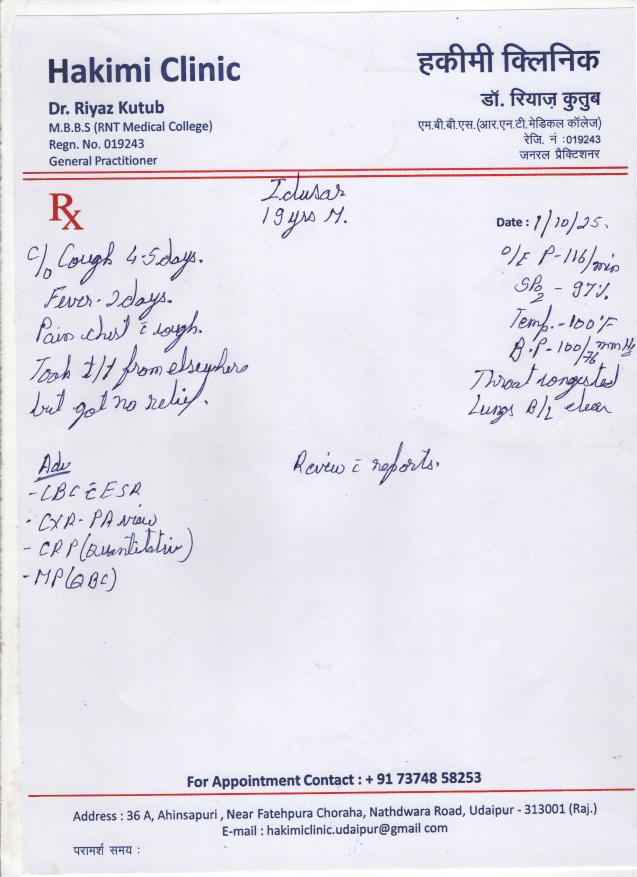 Hakimi Clinic
Dr. Riyaz Kutub
M.B.B.S (RNT Medical College)
Regn. No. 019243
General Practitioner
हकीमी क्लिनिक
डॉ. रियाज़ कुतुब
एम.बी.बी.एस.(आर.एन.टी.मेडिकल कॉलेज)
रेजि. नं :019243
जनरल प्रैक्टिशनर
Rx
Idusar
19 yrs M.
Date : 1/10/25.
c/o Cough 4-5 days.
Fever - 2 days.
Pain chest c̄ cough.
Took t/t from elsewhere
but got no relief.
O/E P-116/min
SPO2 - 97%
Temp. - 100°F
B.P - 100/76 mmHg
Throat congested
Lungs B/L clear
Adv
- CBC c̄ ESR
- CXR - PA view
- CRP (Quantitative)
- MP (QBC)
Review c̄ reports.
For Appointment Contact : + 91 73748 58253
Address : 36 A, Ahinsapuri , Near Fatehpura Choraha, Nathdwara Road, Udaipur - 313001 (Raj.)
E-mail : hakimiclinic.udaipur@gmail.com
परामर्श समय :